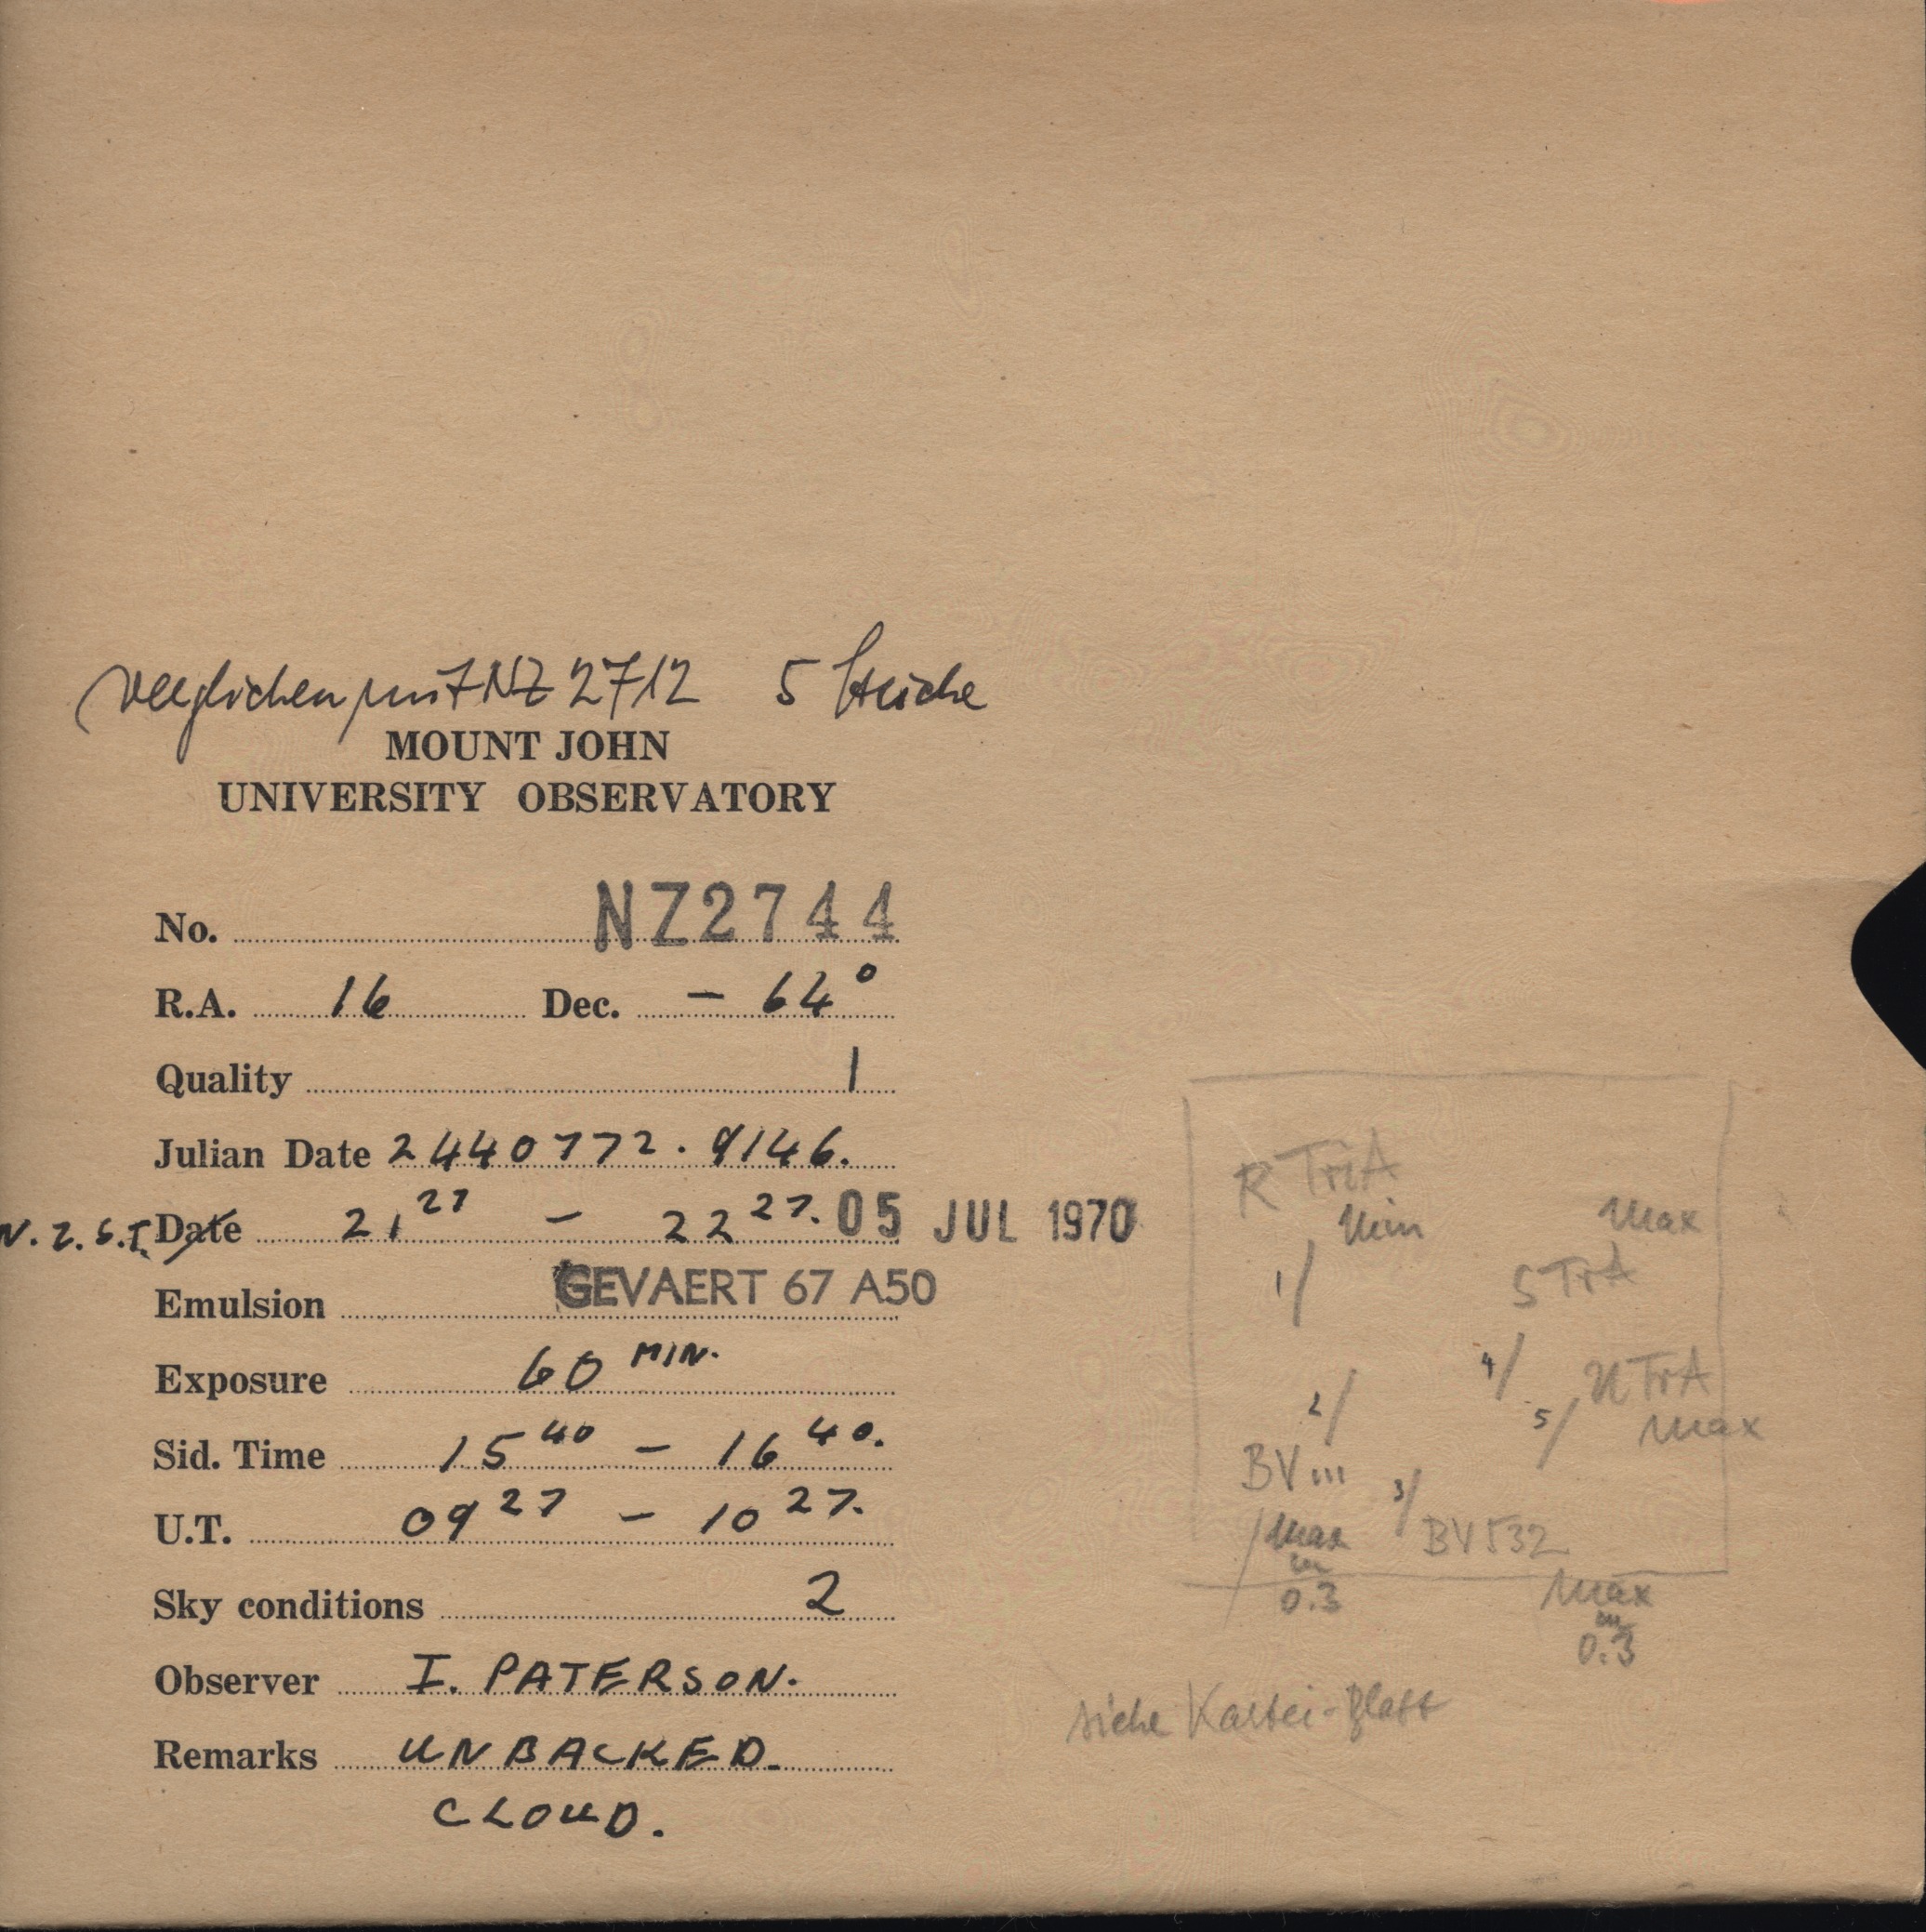 verglichen mit NZ 2712 5 Striche
MOUNT JOHN
UNIVERSITY OBSERVATORY
No. NZ2744
R.A. 16 Dec. - 64°
Quality 1
Julian Date 2440772.9146.
N.Z.S.T. Date 21 27 - 22 27. 05 JUL 1970
Emulsion GEVAERT 67 A50
Exposure 60 MIN.
Sid. Time 15 40 - 16 40.
U.T. 09 27 - 10 27.
Sky conditions 2
Observer I. PATERSON.
Remarks UNBACKED.
CLOUD.
R TriA
Min
Max
1/
S TrA
4/
U TrA
2/
5/
Max
BV
3/
Max
BV 532
m
0.3
Max
m
0.3
siehe Kartei-Blatt